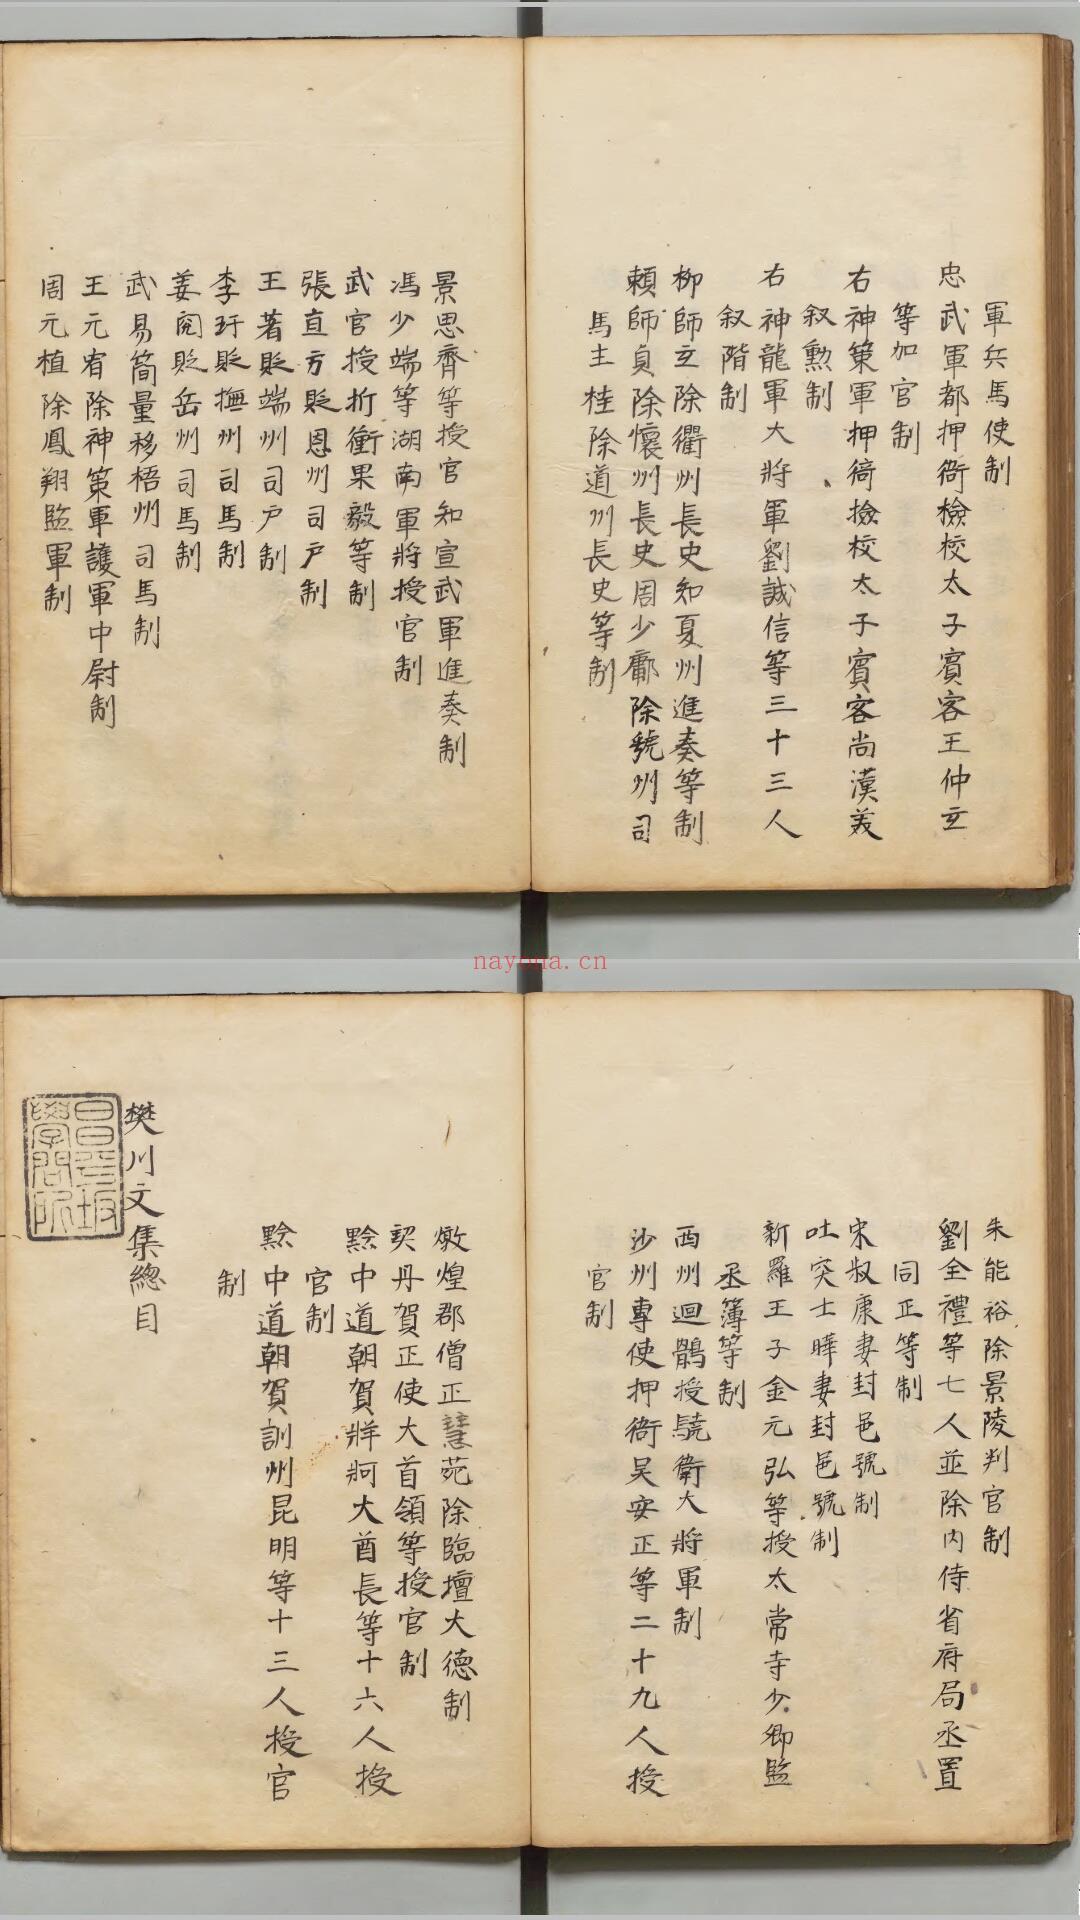 軍兵馬使制
忠武軍都押衙檢校太子賓客王仲玄
等加官制
右神策軍押衙撿校太子賓客尚漢美
叙勲制
右神龍軍大將軍劉誠信等三十三人
叙階制
柳師玄除衢州長史知夏州進奏等制
賴師貞除懷州長史周少鄘除虢州司
馬王桂除道州長史等制
景思齊等授官知宣武軍進奏制
馮少端等湖南軍將授官制
武官授折衝果毅等制
張直方貶恩州司戶制
王著貶端州司戶制
李玗貶撫州司馬制
姜閱貶岳州司馬制
武易簡量移梧州司馬制
王元宥除神策軍護軍中尉制
周元植除鳳翔監軍制
nayona.cn
朱能裕除景陵判官制
劉全禮等七人並除内侍省府局丞置
同正等制
宋叔康妻封邑號制
吐突士曄妻封邑號制
新羅王子金元弘等授太常寺少卿監
丞簿等制
西州迴鶻授驍衛大將軍制
沙州專使押衙吴安正等二十九人授
官制
燉煌郡僧正慧苑除臨壇大德制
契丹賀正使大首領等授官制
黔中道朝賀牂牁大酋長等十六人授
官制
黔中道朝賀訓州昆明等十三人授官
制
樊川文集總目
昌平坂
學問所